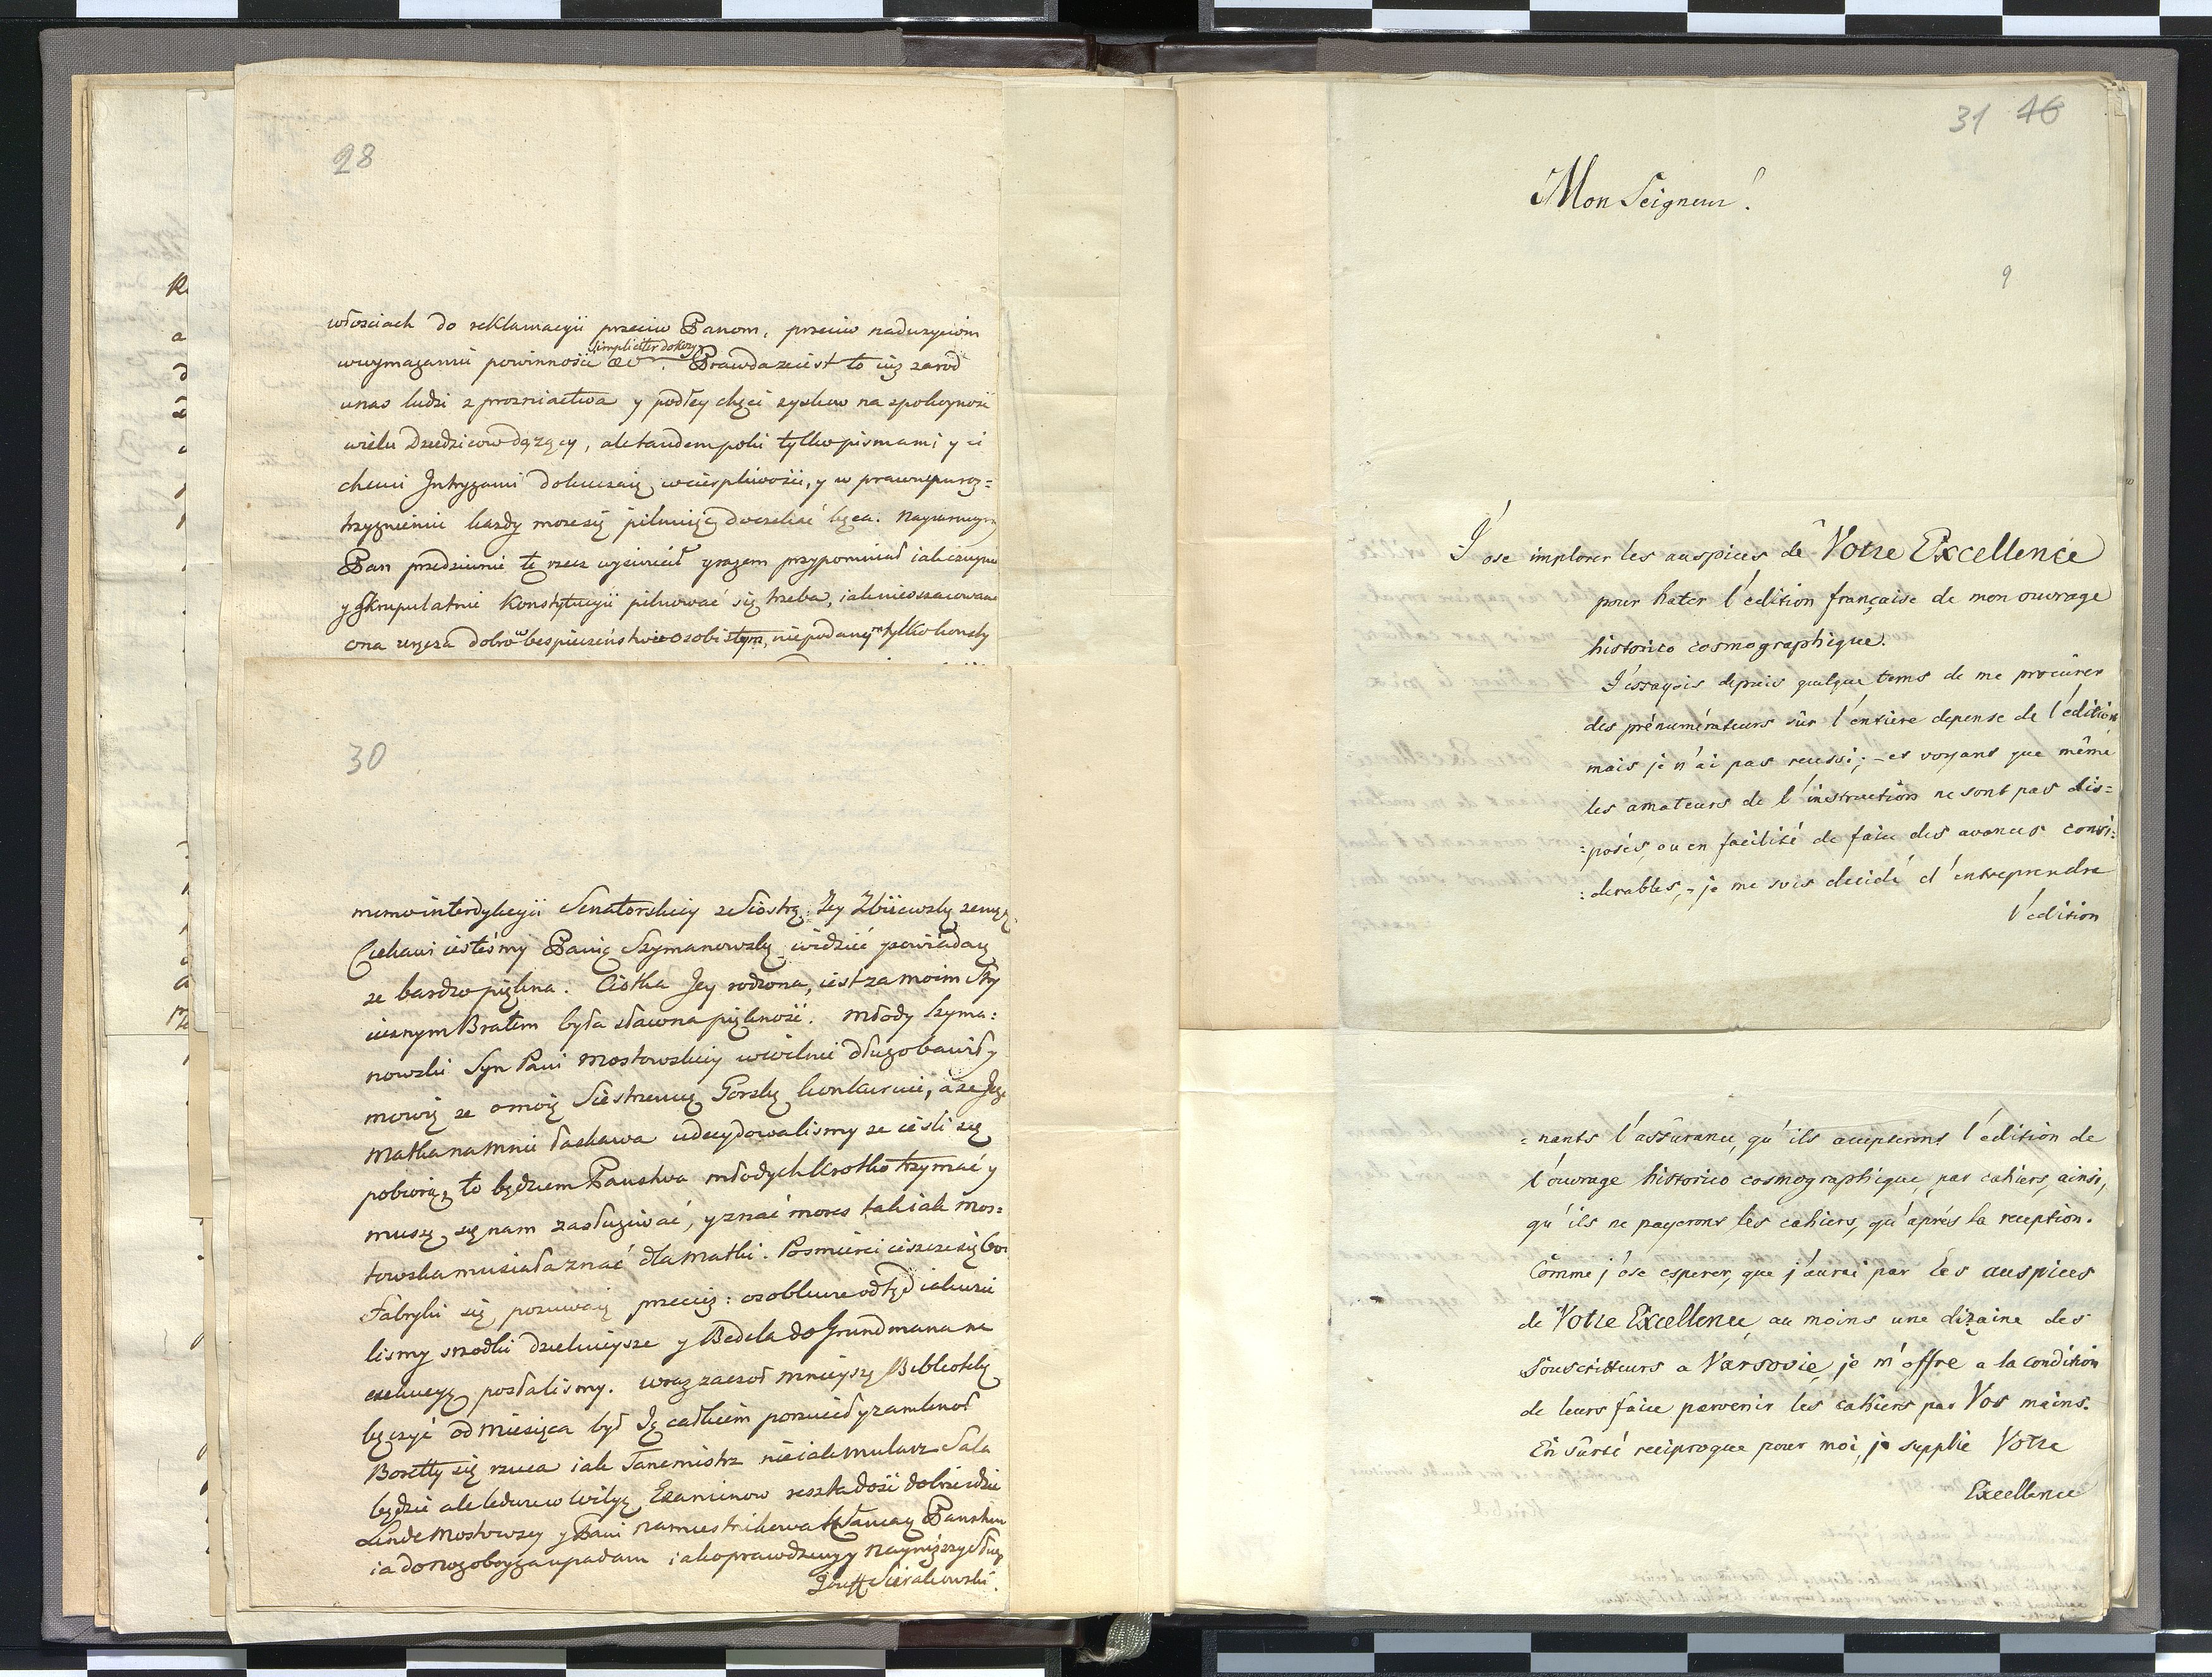 28
włosciach do reklamacyii przeciw Panom, przeciw naduzyciom
simpliciter dokszy
wwymaganiu powinnosci &c. Prawda ze iest to iuz zarod
unas ludzi z prozniactwa y podłey chęci zyskow na spokoynosć
wielu Dziedzicow dązący, ale tandem poki tylko pismami y ci
chemi Intrygami dokuczaią wcierpliwosci, y w prawnepuroz=
trzygnieniu kazdy moze się pilnuiąc doczekać końca.
Pan przedziwnie tę rzecz wyswiecił y razem przypomniał iak czuynie
y skrupulatnie Konstytucyii pilnować się trzeba, iak nieoszacowane
ona wręcza dobro w bespieczeństwie osobistym, niepodany tylko
30
mimo interdykcyii Senatorskiey z Siostrą Jey Zbiiewską
Ciekawi iesteśmy Panią Szymanowską widzieć powiadaią
ze bardzo piękna. Ciotka Jey rodzona, iest za moim Stry
iecznym Bratem była sławna pięknosć. Młody Szyma=
nowski Syn Pani Mostowskiey w Wilnie długo bawił y
mowią ze o moię Siestrzenicę Gorską konkuruie, a ze Jego
Matka na mnie łaskawa udecydowalismy ze iesli się
pobiorą, to będziem Panstwa młodych krotko trzymać y
muszą się nam zasługiwać, y znać mores tak iak Mos=
towska musiała znać dla Matki. Po smierci ieszcze się
Fabryki się posuwaią przecię: osobliwie odtąd iak uzie
lismy srzodki dzielnieysze y Bedela do Grundmana na
exekucyą posłalismy. wraz zaczoł mnieyszą Bibliotekę
kączyć od miesiąca był Ją całkiem porzucił y zamknoł
Boretty się rzuca iak Tanemistrz nie iak mularz Sala
będzie ale ledwie w Wilyą Examinow reszta dosć dobrze idzie
Linde Mostowscy y Pani namiestnikowa kłaniaią Panstwu
ia do nog oboyga upadam iako prawdziwy y nayniższy sługa
Jozeff Sierakowski.
31 46
Mon Seigneur!
9
J'ose implorer les auspices de Votre Excellence
pour hater l'edition française de mon ouvrage
historico cosmographique.
J'essayois depuis quelque tems de me procurer
des prénumérateurs sûr l'entiere depense de l'edition
mais je n'ai pas reussi; - et voyant que même
les amateurs de l'instruction ne sont pas dis=
=posés, ou en facilité de faire des avances consi=
=derables, - je me suis decidé d'entreprendre
l'edition
=nants l'assûrance, qu'ils accepteront l'edition de
l'ouvrage historico cosmographique, par cahiers, ainsi,
qu'ils ne payerons les cahiers, qu'aprés la reception.
Comme j'ose esperer, que j'aurai par les auspices
de Votre Excellence, au moins une dizaine des
Souscritteurs a Varsovie, je m'offre a la condition
de leurs faire parvenir les cahiers par Vos mains.
En sûrté reciproque pour moi, je supplie Votre
Excellence